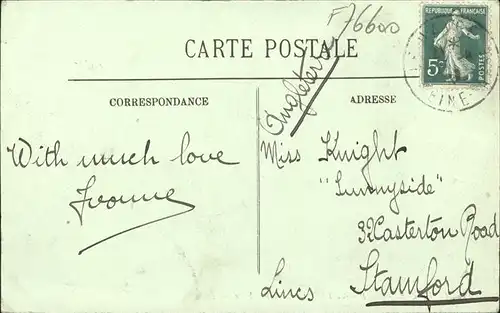 F76600
CARTE POSTALE
REPUBLIQUE FRANÇAISE
5c
POSTES
CORRESPONDANCE
ADRESSE
Angleterre
With much love
Yvonne
Miss Knight
"Sunnyside"
32 Casterton Road
Stamford
Lincs